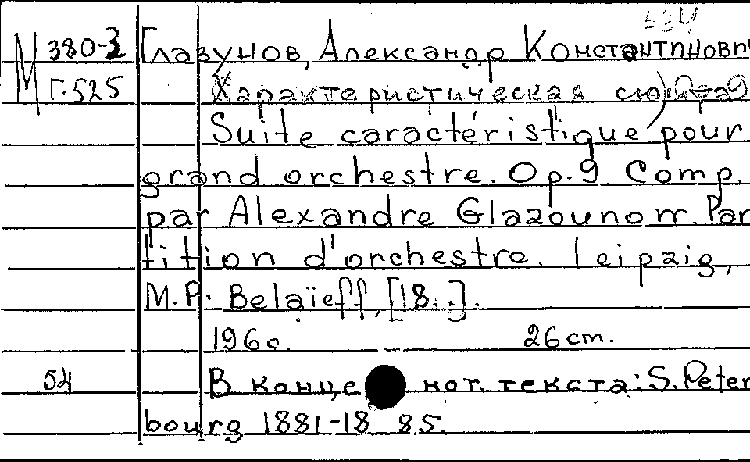 М 380-3 Глазунов, Александр Константинович
Г.525 Характеристическая сюита)
Suite caractéristique pour
grand orchestre. Op. 9 Comp.
par Alexandre Glazounow. Par
tition d'orchestre. Leipzig,
M. P. Belaïeff, [18..].
196 с. 26 cm.
54 В конце нот. текста: S. Peter
bourg 1881-18 85.